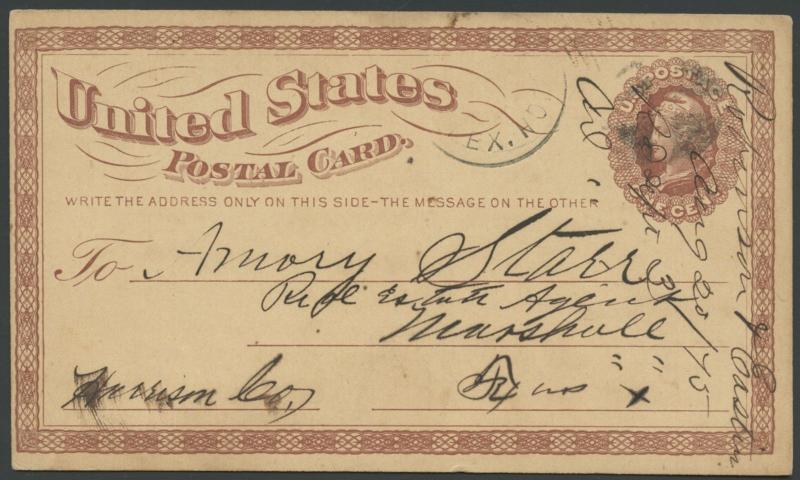 United States
POSTAL CARD.
WRITE THE ADDRESS ONLY ON THIS SIDE–THE MESSAGE ON THE OTHER
EX. NO.
U.S. POSTAGE
ONE CENT
To Amory Starr
Real Estate Agent
Marshall
Harrison Co, Texas "
Robinson &
Aug 20/75